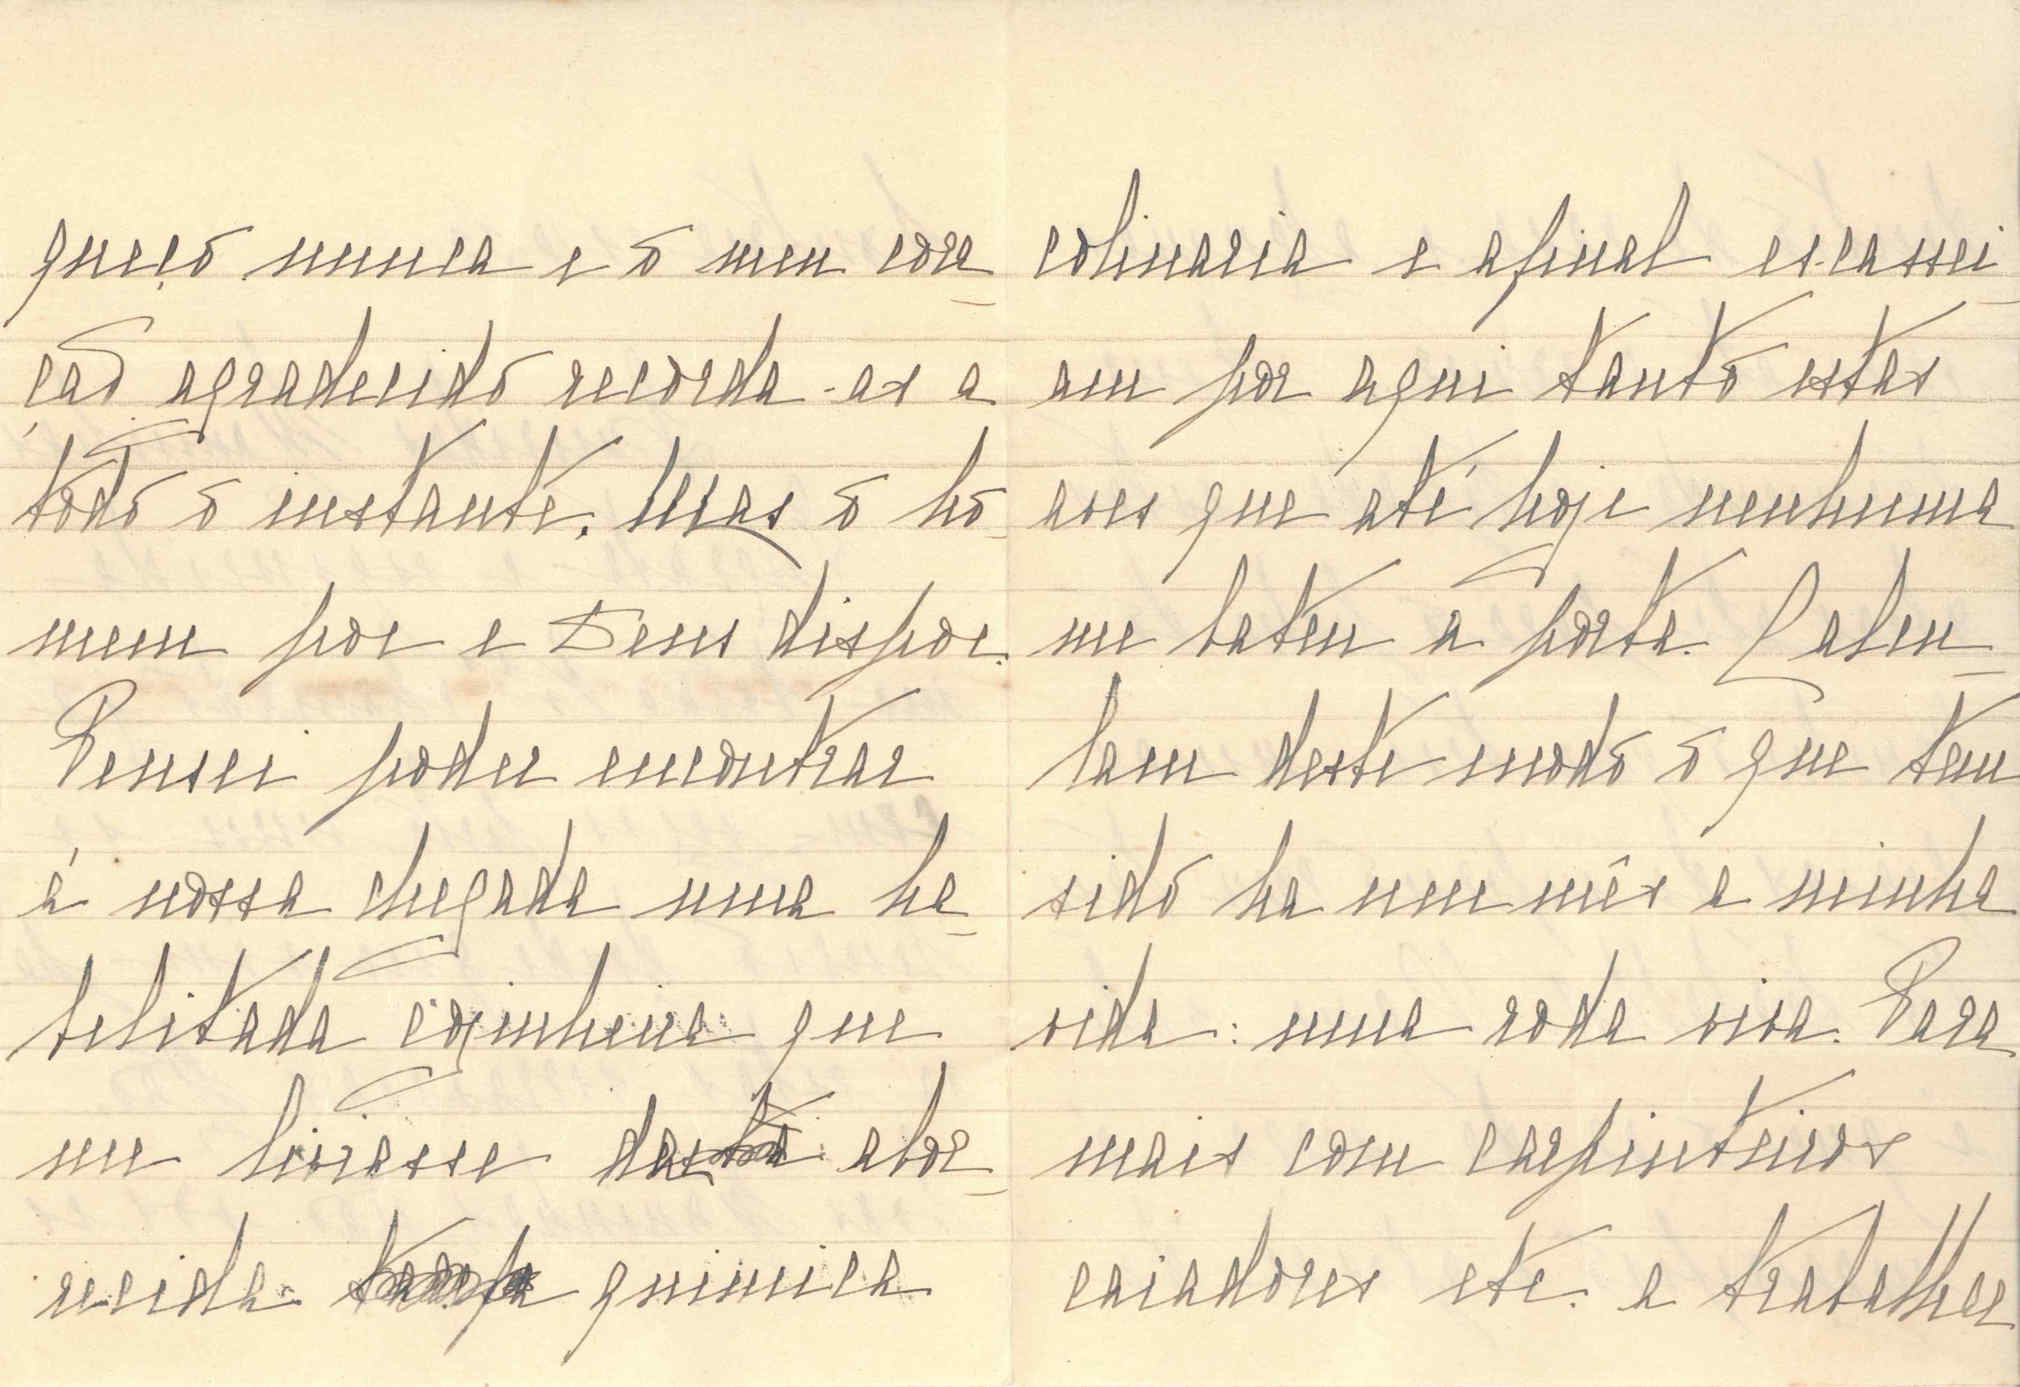 queço nunca e o meu cora
ção agradecido recorda-as a
todo o instante. Mas o ho
mem poe e Deus dispoe.
Pensei poder encontrar
á nossa chegada uma ha
bilitada cozinheira que
me liviasse da abor
recida quimica
colinaria e afinal escassei
am por aqui tanto estas
aves que até hoje nenhuma
me bateu á porta. Calcu
lam deste modo o que tem
sido ha um mês a minha
vida: uma roda viva. Para
mais com carpinteiros
caiadores etc. a trabalhar